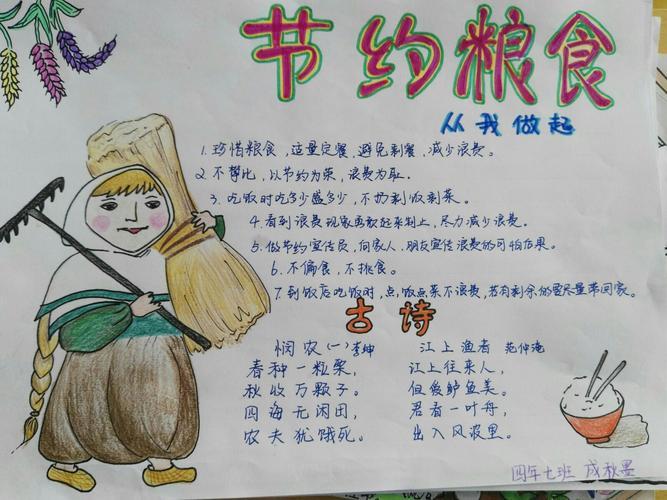 节约粮食
从我做起
1. 珍惜粮食，适量定餐，避免剩餐，减少浪费。
2. 不攀比，以节约为荣，浪费为耻。
3. 吃饭时吃多少盛多少，不扔剩饭剩菜。
4. 看到浪费现象勇敢起来制止，尽力减少浪费。
5. 做节约宣传员，向家人，朋友宣传浪费的可怕后果。
6. 不偏食，不挑食。
7. 到饭店吃饭时，点饭点菜不浪费，若有剩余的要尽量带回家。
古诗
悯农（一）李坤
春种一粒粟，
秋收万颗子。
四海无闲田，
农夫犹饿死。
江上渔者 范仲淹
江上往来人，
但爱鲈鱼美。
君看一叶舟，
出入风波里。
四年七班 成秋墨